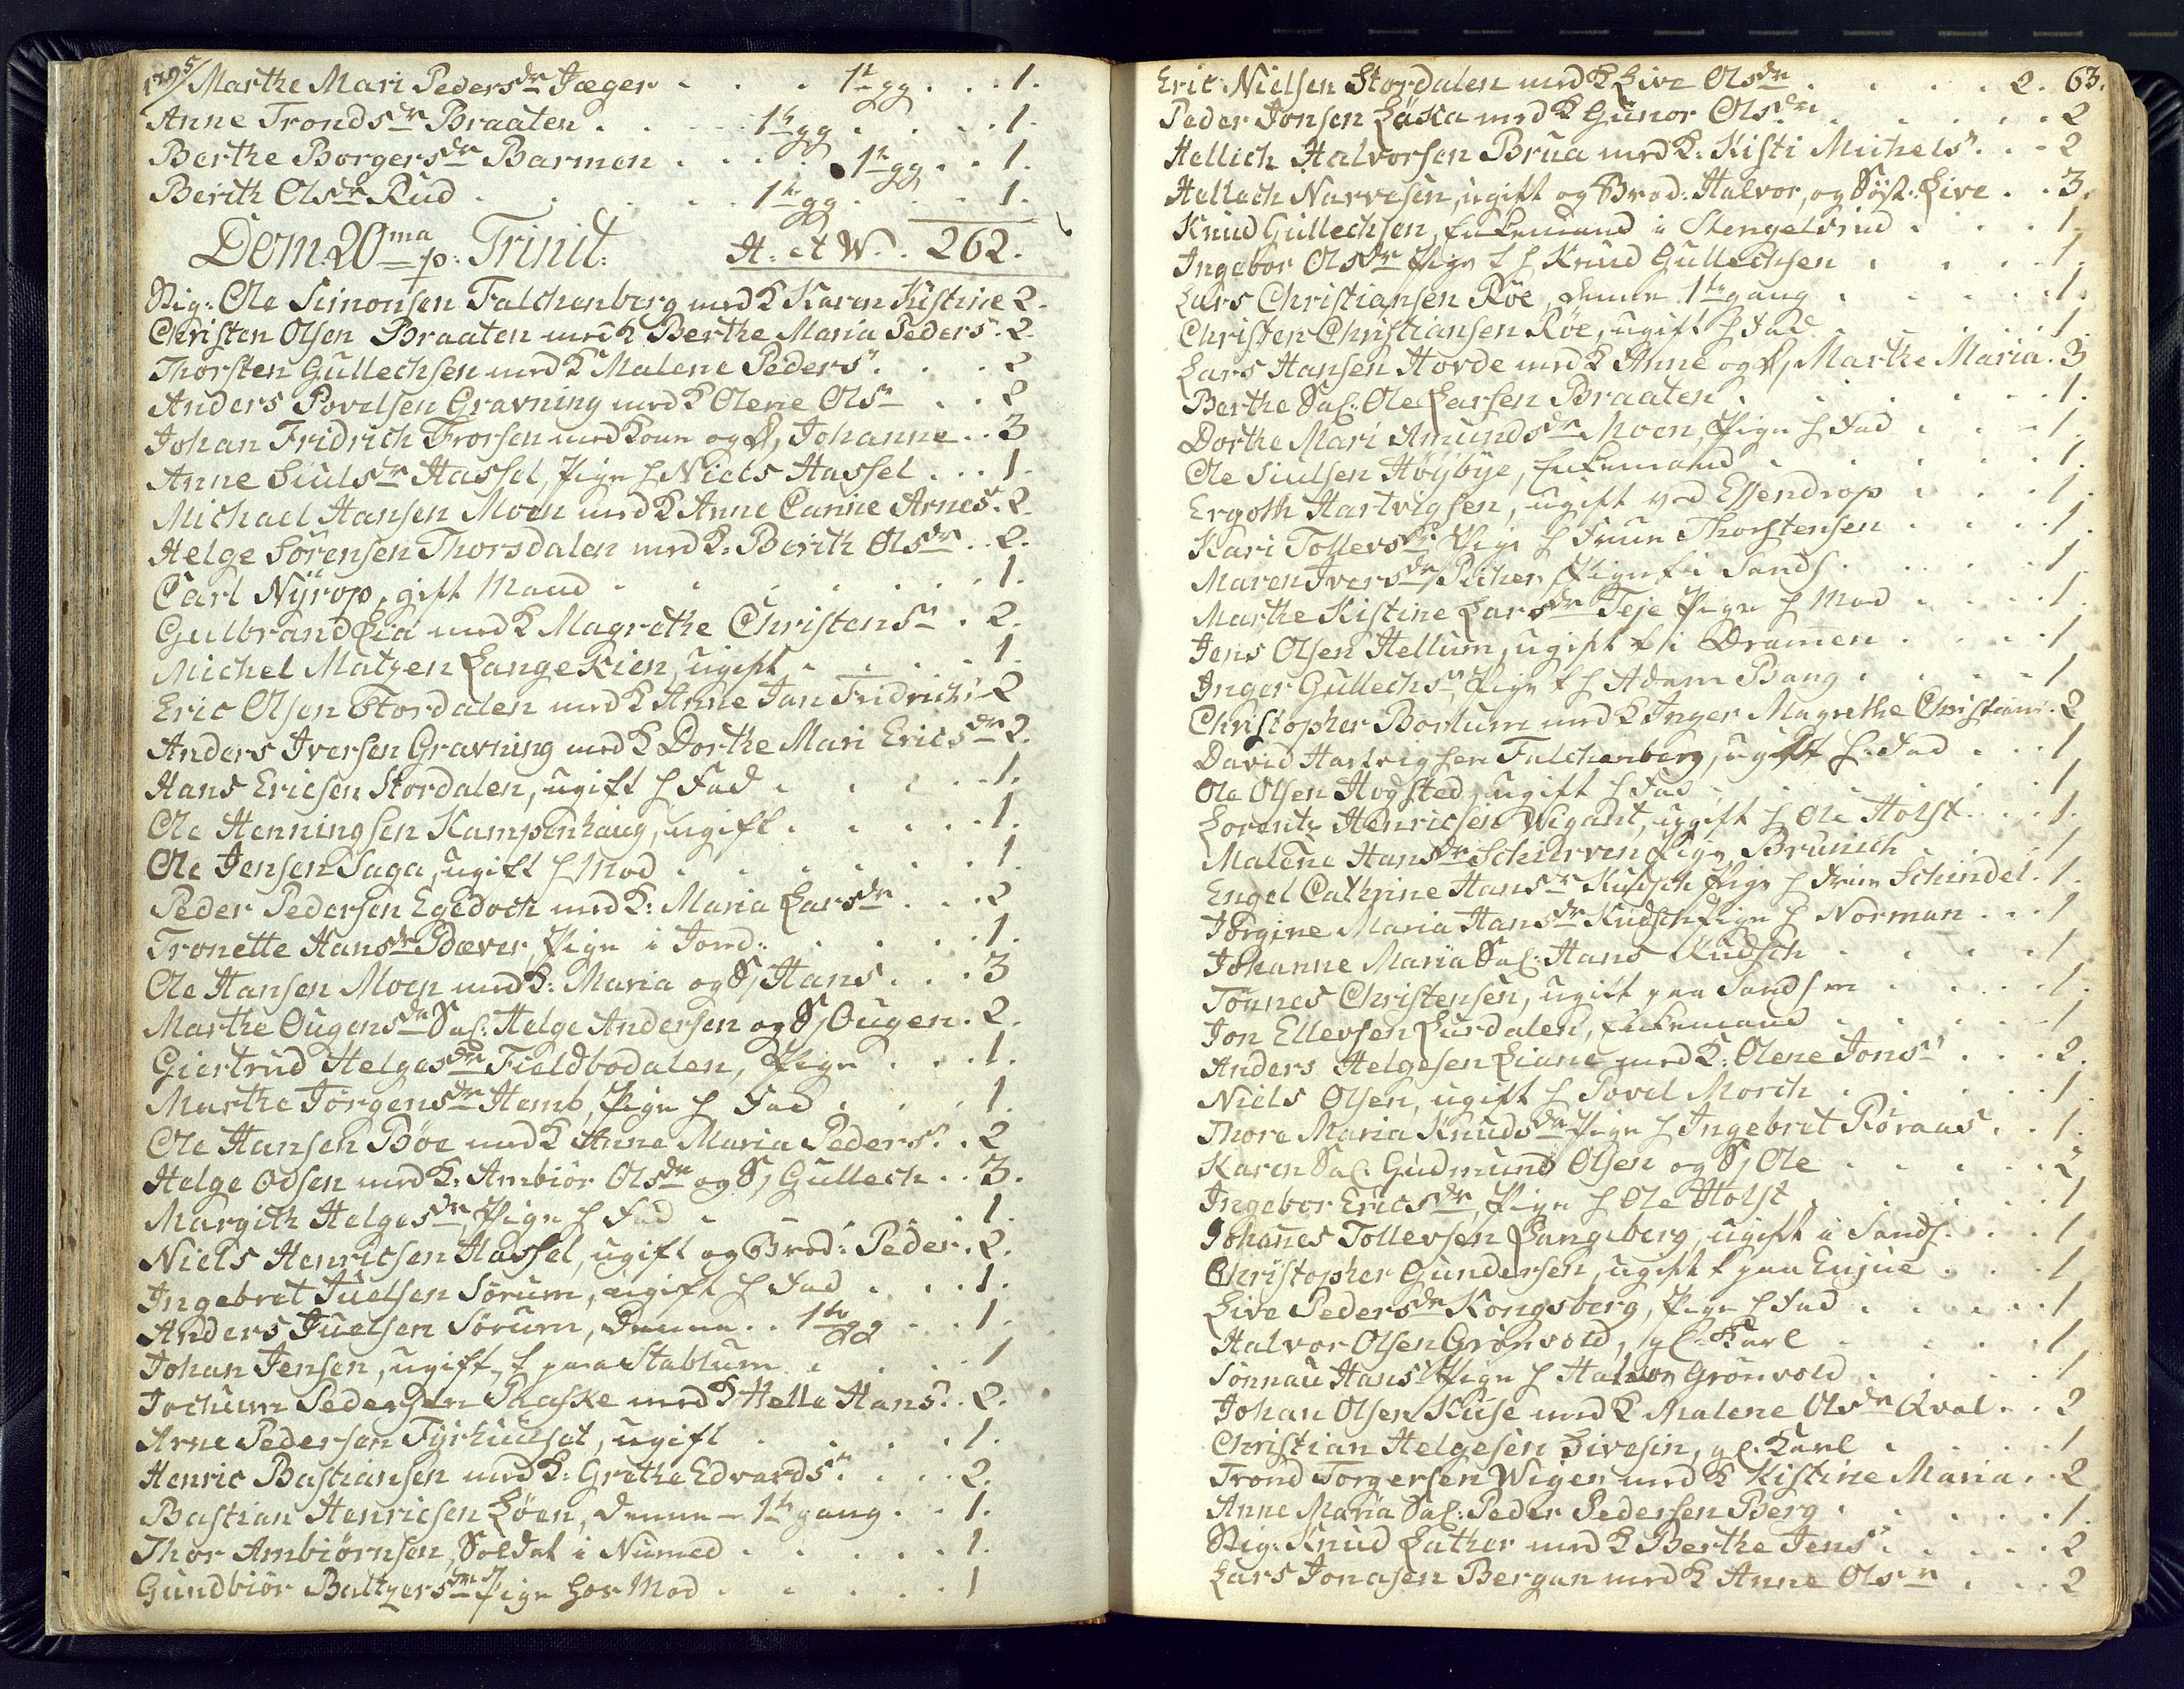 1795/ Marthe Mari Pedersdr Jæger . . . 1te gg . . . 1.
Anne Trondsdr Braaten . . . 1te gg . . . 1.
Berthe Borgersdr Barmen . . . 1te gg . . 1.
Berith Olsdr Rud . . . 1te gg . . . 1.
Dom: 20ma p: Trinit: A. et W. . 262.
Stig: Ole Simonsen Falchenberg med K Karen Kistine 2.
Christen Olsen Braaten med K Berthe Maria Pedersr. 2.
Thorsten Gullechsen med K Malene Pedersr. . . 2
Anders Povelsen Gravning med K Olene Olsr . . 2
Johan Fridrich Frorsen med Kone og D/ Johanne . . 3
Anne Siulsdr Hassel, Pige h Niels Hassel . . . 1.
Michael Hansen Moen med K Anne Canie Arnesr. 2.
Helge Sörensen Thorsdalen med K: Berith Olsdr . . 2.
Carl Nÿrop, gift Mand . . . 1.
Gulbrand Lia med K Magrethe Christensr . 2.
Michel Matzen Langekien, ugift . . . 1.
Eric Olsen Stordalen med K Anne Jan Fridrichsr 2
Anders Iversen Gravning med K Dorthe Mari Ericsdr 2.
Hans Ericsen Stordalen, ugift h Fad . . . 1.
Ole Henningsen Kampenhaug, ugift . . . 1.
Ole Jensen Saga, ugift h Mod . . . 1.
Peder Pedersen Egedoch med K: Maria Larsdr . . 2
Tronette Hansdr Bæver, Pige i Jond: . . . 1.
Ole Hansen Moen med K: Maria og S/ Hans . . . 3
Marthe Ougensdr Sal: Helge Andersen og S/ Ougen . 2.
Giertrud Helgesdr Fieldbodalen, Pige . . . 1.
Marthe Jörgensdr Hemb, Pige h Fad . . . 1.
Ole Hansen Böe med K Anne Maria Pedersr. . 2
Helge Odsen med K: Ambiör Olsdr og S/ Gullech . . 3.
Margith Helgesdr, Pige h Fad . . . 1.
Niels Henricsen Hassel, ugift og Brod: Peder . 2.
Ingebret Juelsen Sörum, ugift h Fad . . . 1.
Anders Juelsen Sörum, Denne . . 1te gg . . 1.
Johan Jensen, ugift, t paa Stablum . . . 1
Jochum Pedersen Paske med K Helle Hansr. . 2.
Arne Pedersen Tyrhuuset, ugift . . . 1.
Henric Bastiansen med K: Grethe Edvardsr. . . . 2.
Bastian Henricsen Löen, Denne 1te gang . . 1.
Thor Ambiörnsen, Soldat i Numed . . . 1.
Gundbiör Baltzersdr Pige hos Mod . . . 1
Eric Nielsen Stordalen med K Live Olsdr . . . 2. 63.
Peder Jonsen Läska med K Gunor Olsdr . . . 2
Hellich Halvorsen Brua med K: Kisti Michelsr. . . 2
Hellech Narvesen, ugift og Brod: Halvor, og Söst: Live . . 3.
Knud Gullechsen, Enkemand i Stengelsrud . . . 1.
Ingebor Olsdr Pige t h Knud Gullechsen . . . 1.
Lars Christiansen Röe, Denne 1te gang . . . 1.
Christen Christiansen Röe, ugift h Fad . . . 1.
Lars Hansen Hovde med K Anne og D/ Marthe Maria . 3
Berthe Sal: Ole Larsen Braaten . . . 1.
Dorthe Mari Amundsdr Moen, Pige h Fad . . . 1.
Ole Siulsen Höÿbÿe, Enkemand . . . 1.
Ergoth Hartvigsen, ugift ved Essendrop . . . 1.
Kari Tollevsdr Pige h Frue Thorstensen . . . 1.
Maren Iversdr Pliker, Pige t i Sands . . . 1
Marthe Kistine Larsdr Teje Pige h Mod . . . 1.
Jens Olsen Hellum, ugift t i Dramen . . . 1
Inger Gullechsr, Pige t h Adam Bang . . . 1
Christopher Borlum med K Inger Magrethe Christians. 2
David Hartvigsen Falchenberg, ugift h: Fad . . . 1
Ole Olsen Hogsted, ugift h Fad . . . 1
Lorentz Henricsen Wigant, ugift h Ole Holst . . . 1.
Malene Hansdr Schierven Pige, Brunich . . . 1
Engel Cathrine Hansr Kudsch Pige h Frue Schindel . 1.
Jörgine Maria Hansdr Kudsch Pige h Norman . . . 1
Johanne Maria Sal: Hans Kudsch . . . 1
Tönnes Christensen, ugift paa Sandsv . . . 1.
Jon Ellevsen Lurdalen, Enkemand . . . 1
Anders Helgesen Liane med K: Olene Jonsr . . . 2.
Niels Olsen, ugift h Povel Morch . . . 1
Thore Maria Knudsdr Pige h Ingebret Röraas . . 1.
Karen Sal: Gudmund Olsen og S/ Ole . . . 2
Ingebor Ericsdr, Pige h Ole Holst . . . 1
Johanes Tollevsen Langeberg, ugift i Sands. . . 1
Christopher Gundersen, ugift t paa Enjue . . 1
Live Pedersdr Kongsberg, Pige h Fad . . . 1
Halvor Olsen Grönvold, gl: Karl . . . 1
Sönnau Hansr Pige h Halvor Grönvold . . . 1
Johan Olsen Kuse med K Malene Olsdr Qval . . 2
Christian Helgesen Livesin, gl. Karl . . . 1
Trond Torgersen Wiger med K Kistine Maria . . 2
Anne Maria Sal: Peder Pedersen Berg . . . 1.
Stig: Knud Lather med K Berthe Jensr. . . . 2
Lars Jonasen Bergan med K Anne Olsr . . . 2